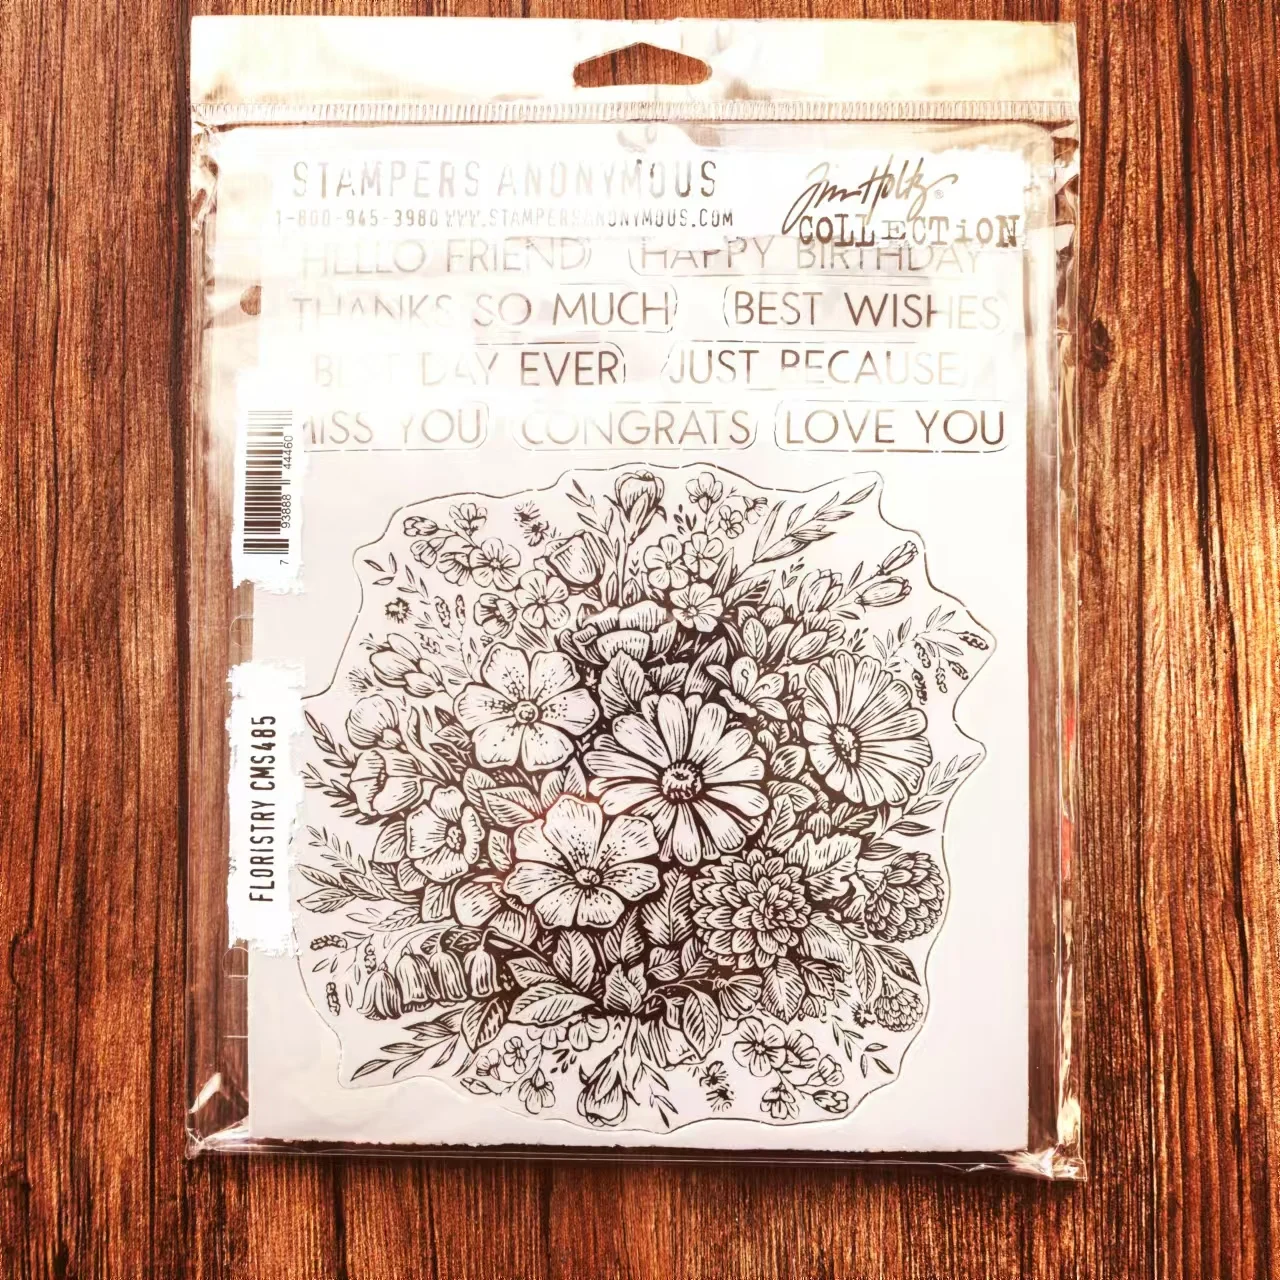 STAMPERS ANONYMOUS
1-800-945-3980 WWW.STAMPERSANONYMOUS.COM
Tim Holtz®
COLLECTiON
HELLO FRIEND
HAPPY BIRTHDAY
THANKS SO MUCH
BEST WISHES
BEST DAY EVER
JUST BECAUSE
MISS YOU
CONGRATS
LOVE YOU
7 93888 44460
FLORISTRY CMS485